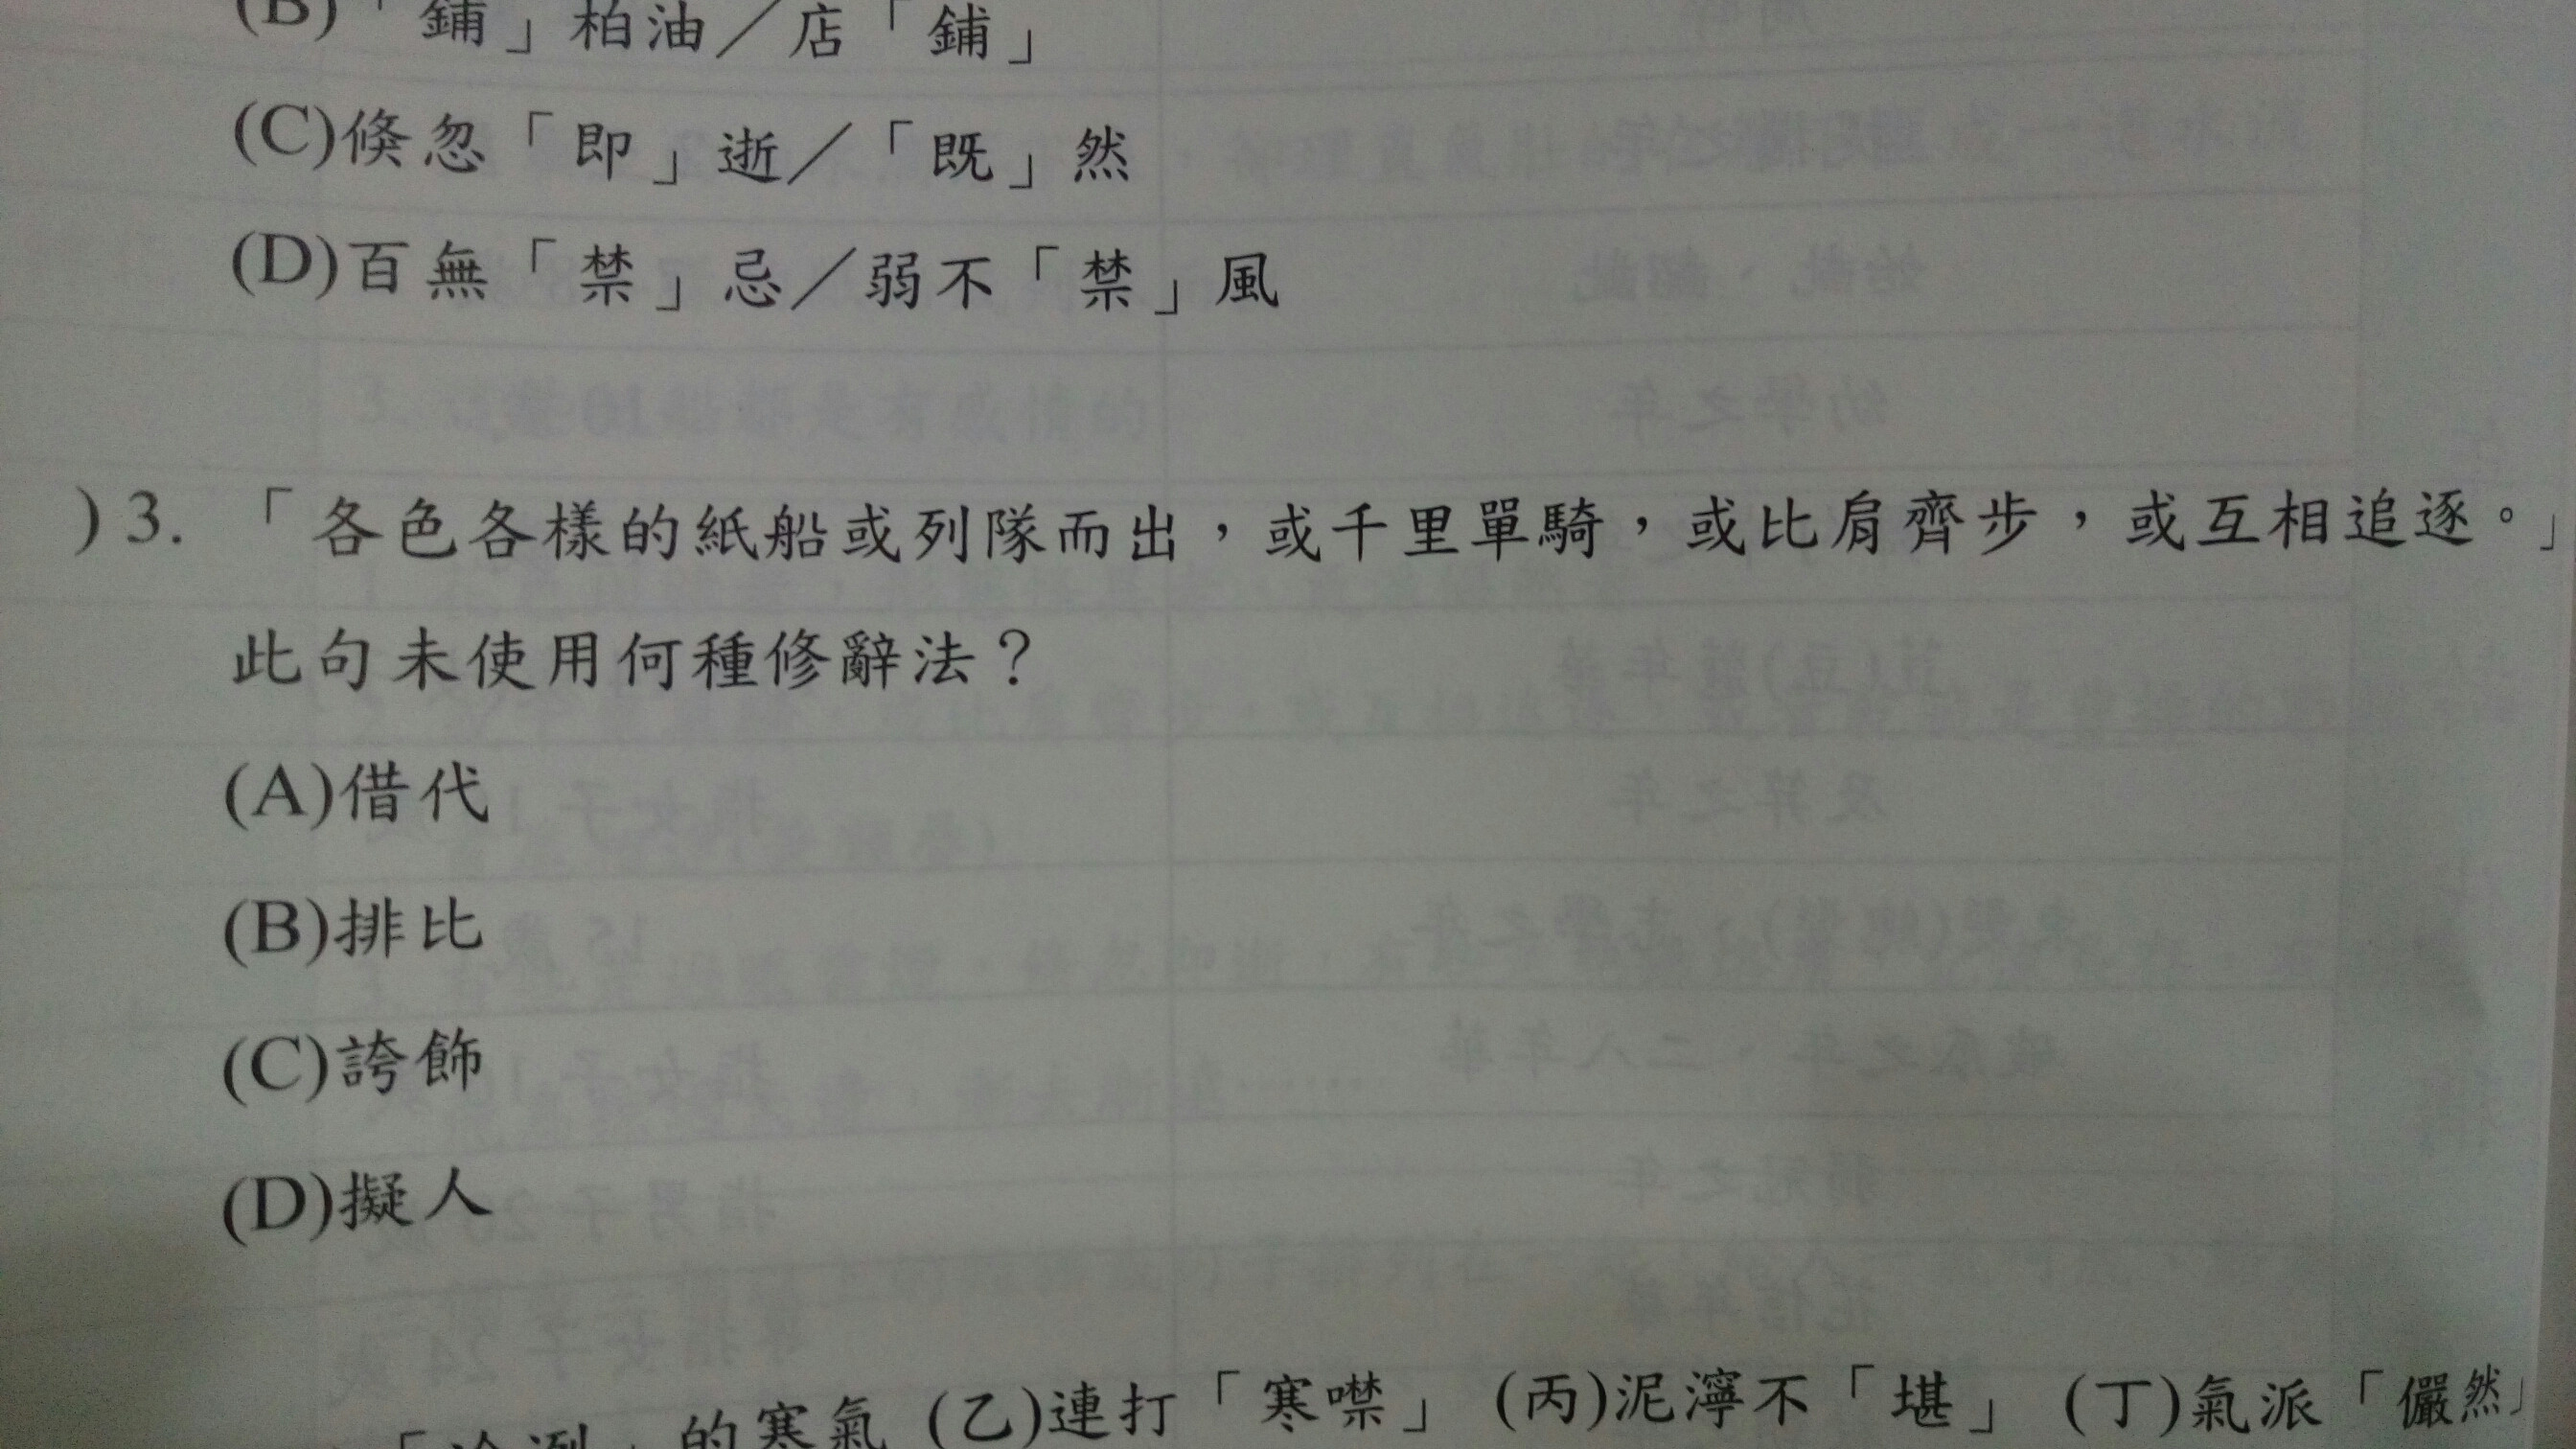 (B)「鋪」柏油／店「鋪」
(C)倏忽「即」逝／「既」然
(D)百無「禁」忌／弱不「禁」風
)3.「各色各樣的紙船或列隊而出，或千里單騎，或比肩齊步，或互相追逐。」
此句未使用何種修辭法？
(A)借代
(B)排比
(C)誇飾
(D)擬人
「冷冽」的寒氣 (乙)連打「寒噤」 (丙)泥濘不「堪」 (丁)氣派「儼然」